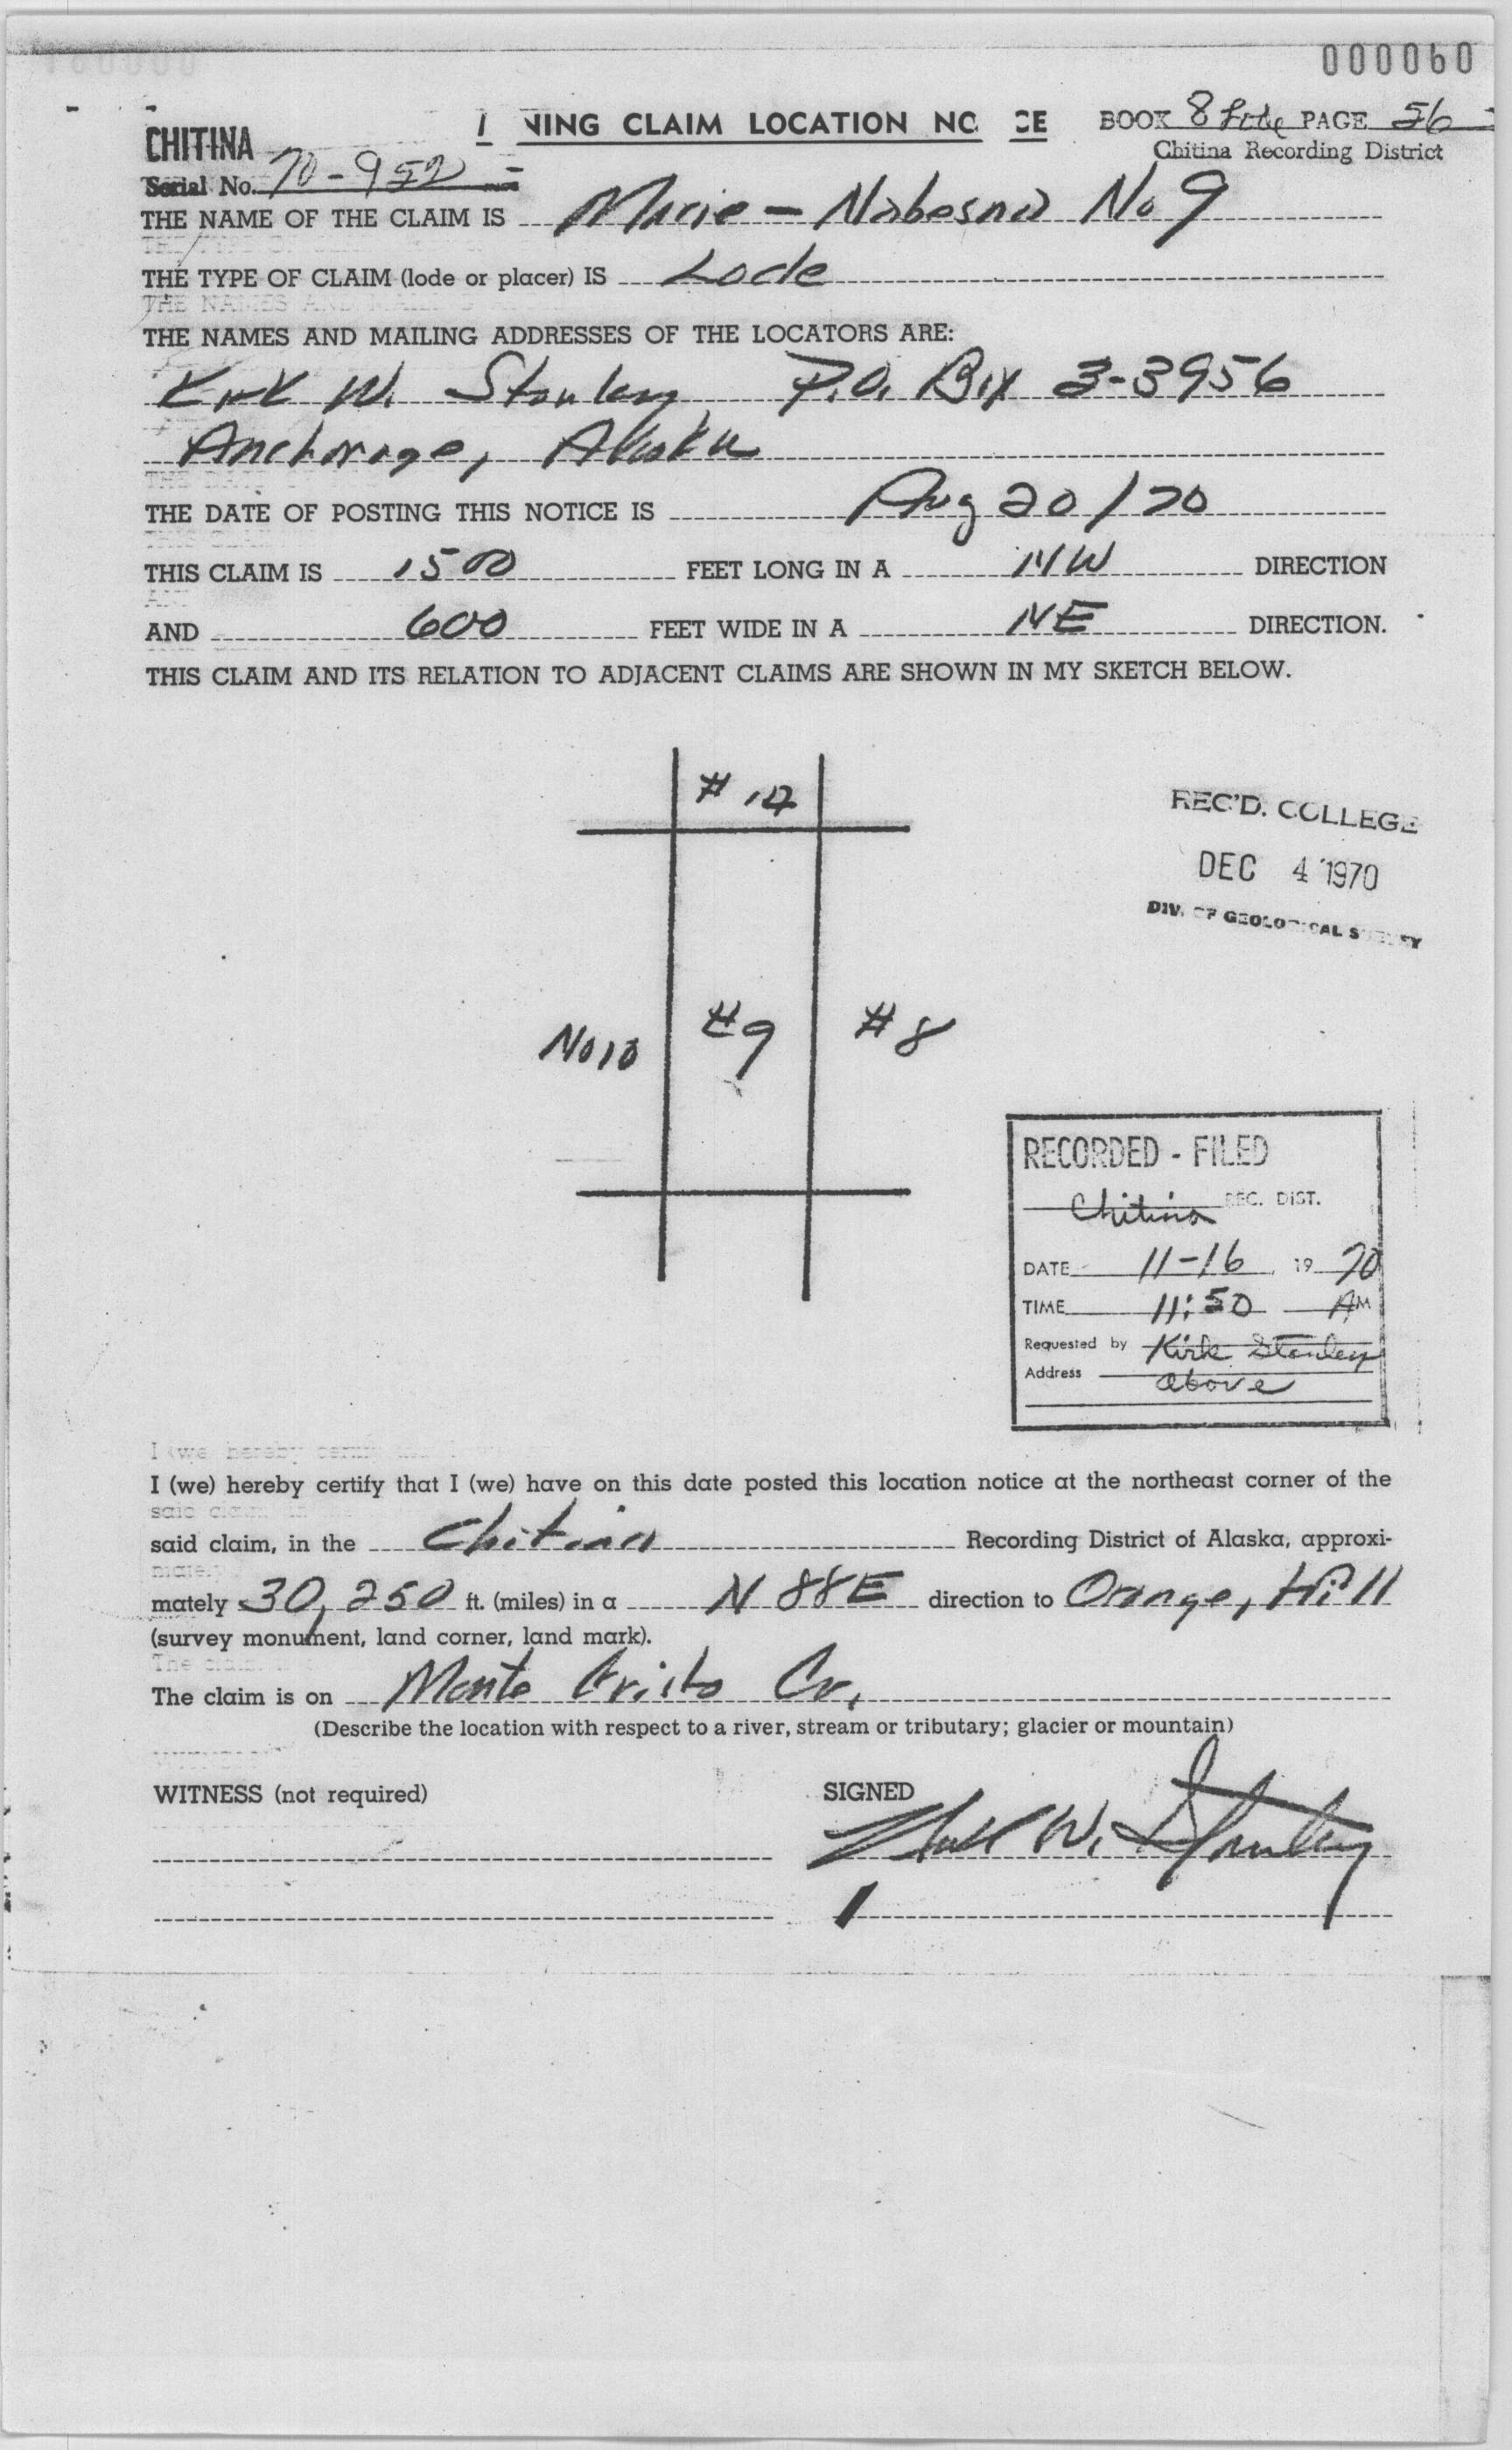 000060
CHITINA
NING CLAIM LOCATION NO CE
BOOK 8 Lode PAGE 56
Chitina Recording District
Serial No. 70-952
THE NAME OF THE CLAIM IS Marie - Nabesna No 9
THE TYPE OF CLAIM (lode or placer) IS Lode
THE NAMES AND MAILING ADDRESSES OF THE LOCATORS ARE:
Kirk W. Stanley, P.O. Box 3-3956
Anchorage, Alaska
THE DATE OF POSTING THIS NOTICE IS Aug 20/70
THIS CLAIM IS 1500 FEET LONG IN A NW DIRECTION
AND 600 FEET WIDE IN A NE DIRECTION.
THIS CLAIM AND ITS RELATION TO ADJACENT CLAIMS ARE SHOWN IN MY SKETCH BELOW.
REC'D. COLLEGE
DEC 4 1970
DIV. OF GEOLOGICAL SURVEY
No 10 #9 #8
RECORDED - FILED
Chitina REC. DIST.
DATE 11-16 1970
TIME 11:50 AM
Requested by Kirk Stanley
Address above
I (we) hereby certify that I (we) have on this date posted this location notice at the northeast corner of the
said claim, in the Chitina Recording District of Alaska, approxi-
mately 30,250 ft. (miles) in a N 88 E direction to Orange, Hill
(survey monument, land corner, land mark).
The claim is on Monte Cristo Cr.
(Describe the location with respect to a river, stream or tributary; glacier or mountain)
WITNESS (not required) SIGNED
Kirk W. Stanley